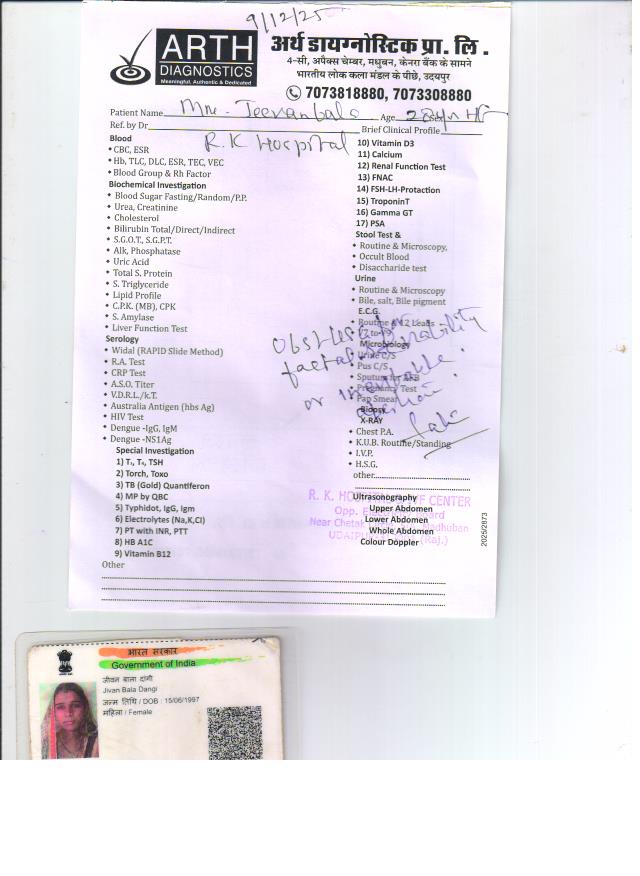 9/12/25
ARTH
DIAGNOSTICS
Meaningful, Authentic & Dedicated
अर्थ डायग्नोस्टिक प्रा. लि.
4-सी, अपैक्स चेम्बर, मधुबन, केनरा बैंक के सामने
भारतीय लोक कला मंडल के पीछे, उदयपुर
7073818880, 7073308880
Patient Name Mrs. Jeevanbala Age 28yr
Ref. by Dr. R.K Hospital Brief Clinical Profile
Blood
CBC, ESR
Hb, TLC, DLC, ESR, TEC, VEC
Blood Group & Rh Factor
Biochemical Investigation
Blood Sugar Fasting/Random/P.P.
Urea, Creatinine
Cholesterol
Bilirubin Total/Direct/Indirect
S.G.O.T., S.G.P.T.
Alk, Phosphatase
Uric Acid
Total S. Protein
S. Triglyceride
Lipid Profile
C.P.K. (MB), CPK
S. Amylase
Liver Function Test
Serology
Widal (RAPID Slide Method)
R.A. Test
CRP Test
A.S.O. Titer
V.D.R.L./k.T.
Australia Antigen (hbs Ag)
HIV Test
Dengue -IgG, IgM
Dengue -NS1Ag
Special Investigation
1) T₃, T₄, TSH
2) Torch, Toxo
3) TB (Gold) Quantiferon
4) MP by QBC
5) Typhidot, IgG, Igm
6) Electrolytes (Na,K,Cl)
7) PT with INR, PTT
8) HB A1C
9) Vitamin B12
Other
10) Vitamin D3
11) Calcium
12) Renal Function Test
13) FNAC
14) FSH-LH-Protaction
15) TroponinT
16) Gamma GT
17) PSA
Stool Test &
Routine & Microscopy,
Occult Blood
Disaccharide test
Urine
Routine & Microscopy
Bile, salt, Bile pigment
E.C.G.
Routine & 12 Leads
Microbiology
Urine C/S
Pus C/S
Sputum for AFB
Pregnancy Test
Pap Smear
Biopsy
X-RAY
Chest P.A.
K.U.B. Routine/Standing
I.V.P.
H.S.G.
other
Ultrasonography
Upper Abdomen
Lower Abdomen
Whole Abdomen
Colour Doppler
Obst USG for
foetal viability
or
R. K. HOSPITAL & IVF CENTER
Opp.
Near Chetak Madhuban
UDAIPUR (Raj.)
2025/2873
भारत सरकार
Government of India
जीवन बाला दांगी
Jivan Bala Dangi
जन्म तिथि / DOB : 15/06/1997
महिला / Female